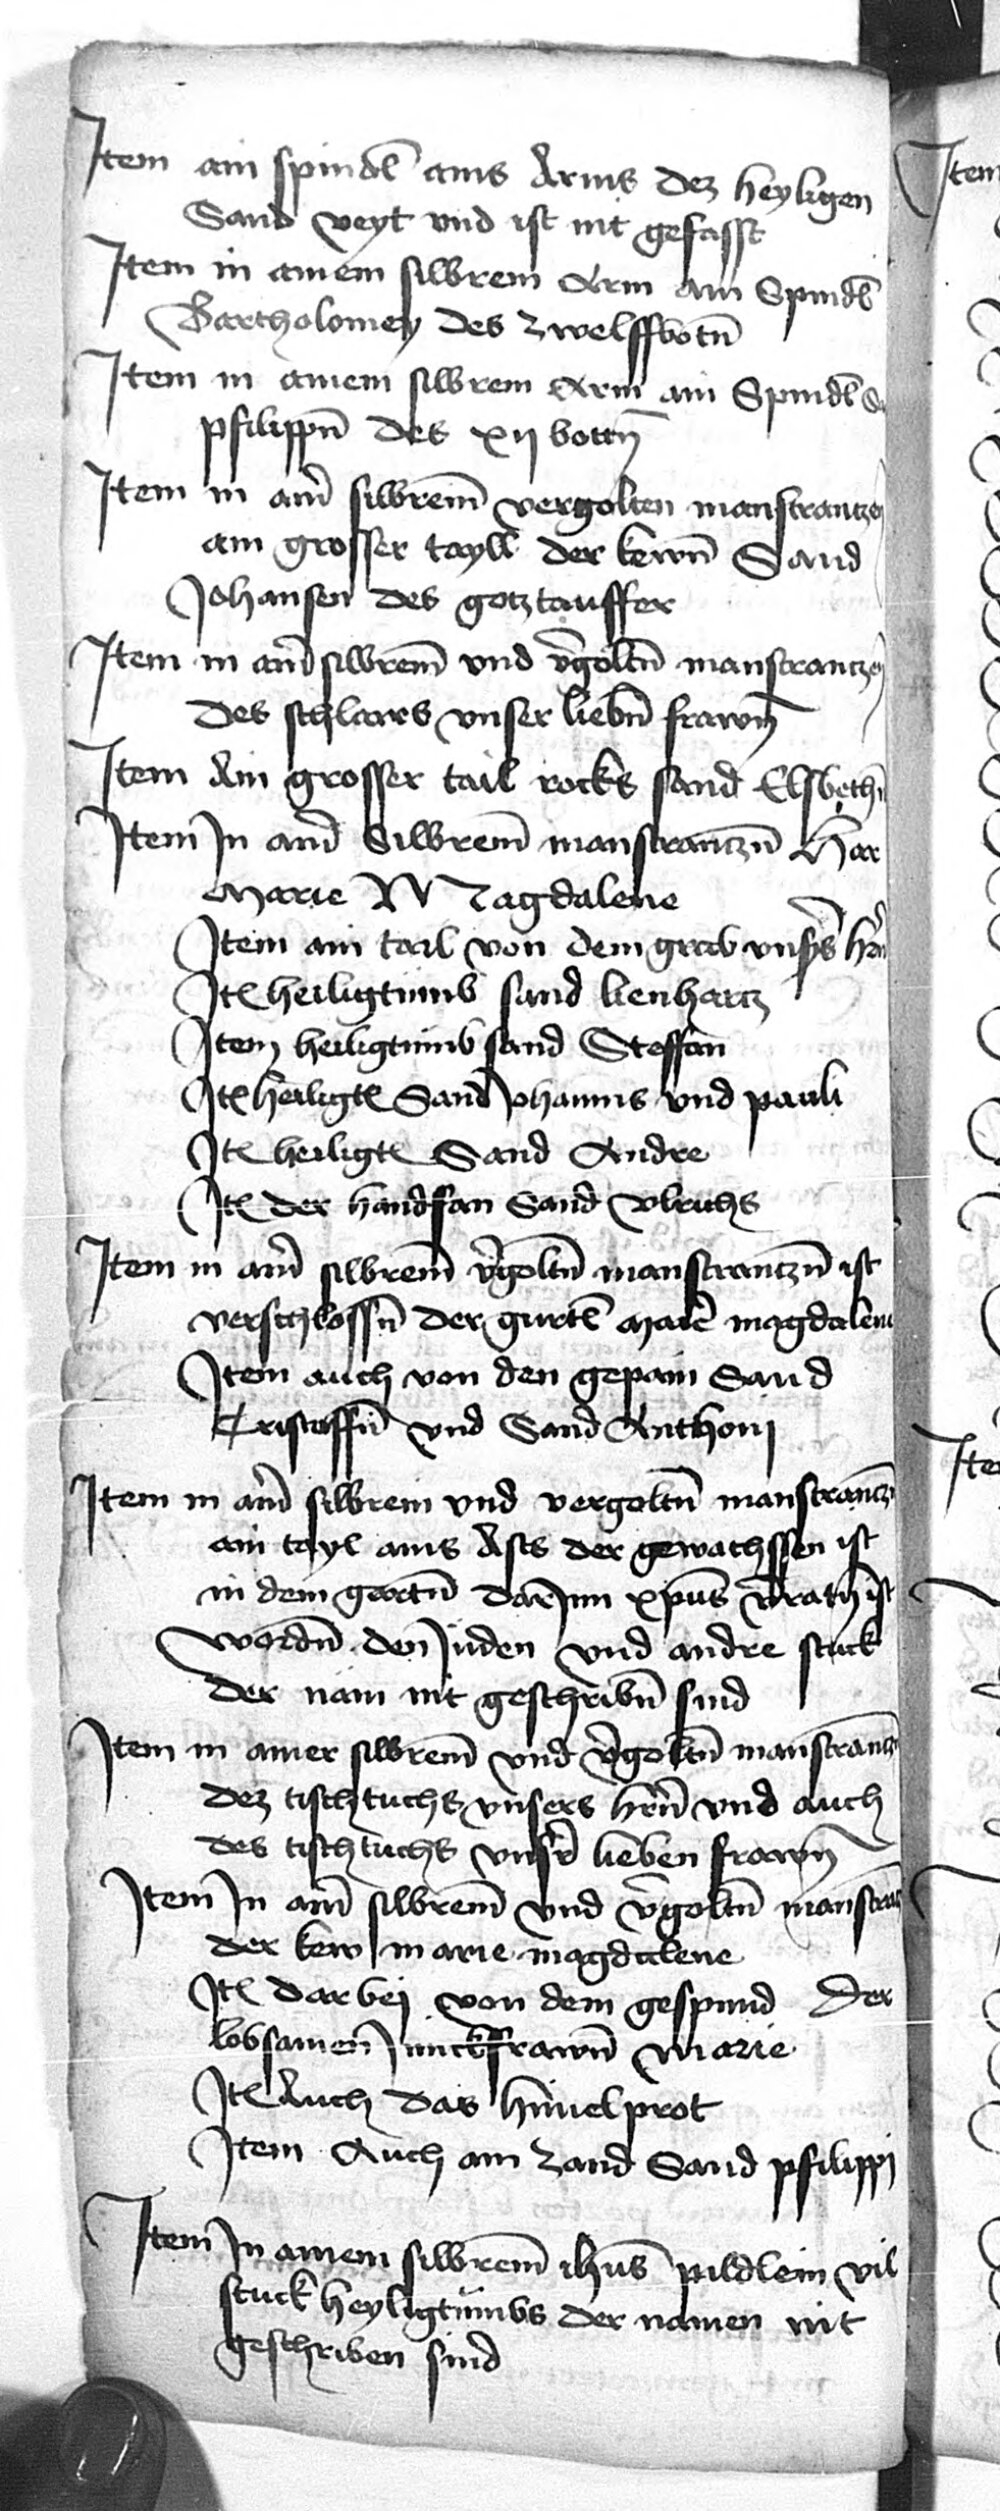 Item ain spindl ains Arms dez heyligen
Sand veyt vnd ist nit gefasst
Item in ainem silbrem Arm ain Spindl
Bartholomey des zwelffbotn̄
Item in ainem silbrem Arm ain Spindl
pfilippn̄ des xij botten̄
Item in ain̄ silbrem̄ vergolten manstrantzen
ain grosser tayll der kewn̄ Sand
Johansen des gotztauffer
Item in ain̄ silbrem̄ vnd v̄goltn̄ manstrantzen
des schlairs vnser liebn̄ frawen̄
Item Ain grosser tail rocks sand Elsbethn̄
Item In ain̄ Silbrem̄ manstrantzn̄ Har
Marie Magdalene
Item ain tail von dem grab vnsers hern̄
Itē heiligtumb sand lienhartz
Item heiligtumb sand Steffan
Itē heiligtē Sand Johannis vnd pauli
Itē heiligtē Sand Andre
Itē der handfan Sand vlrichs
Item in ain̄ silbrem̄ v̄goltn̄ manstrantzn̄ ist
verschlossn̄ der gurtl marē magdalene
Item auch von den gepain Sand
Cristoffn̄ vnd Sand Anthonj
Item in ain̄ silbrein vnd vergoltn̄ manstrantzn̄
ain tayl ains Asts der gewachssen ist
in dem gartn̄ darInn xp̄us v̄raten ist
wordn̄ den Juden vnd andre stuck
der nām nit geschribn̄ sind
Item in ainer silbrem̄ vnd v̄goltn̄ manstrantzn̄
dez tischtuchs vnsers hern̄ vnd auch
des tischtuchs vnsr̄ lieben frawen̄
Item In ain̄ silbrem̄ vnd v̄goltn̄ manstrantz
der kew marie magdalene
Itē darbej von dem gespund der
lobsamen Junckfrawn̄ Marie
Itē Auch das himelprot
Item Auch ain zand Sand pfilippi
Item In ainem silbrem̄ ihūs pildlein vil
stuck heyligtumbs der namen nit
geschriben sind
Item
Item